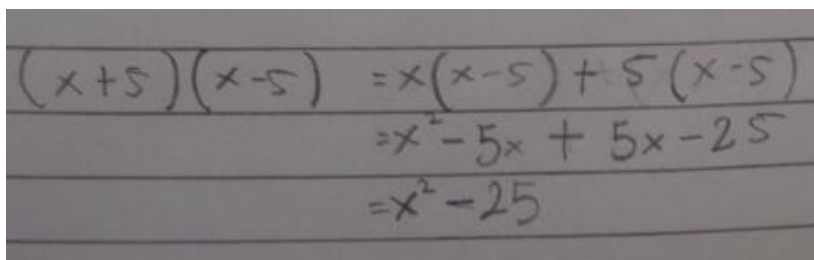 (x+5)(x-5) =x(x-5)+5(x-5)
=x²-5x + 5x-25
=x²-25